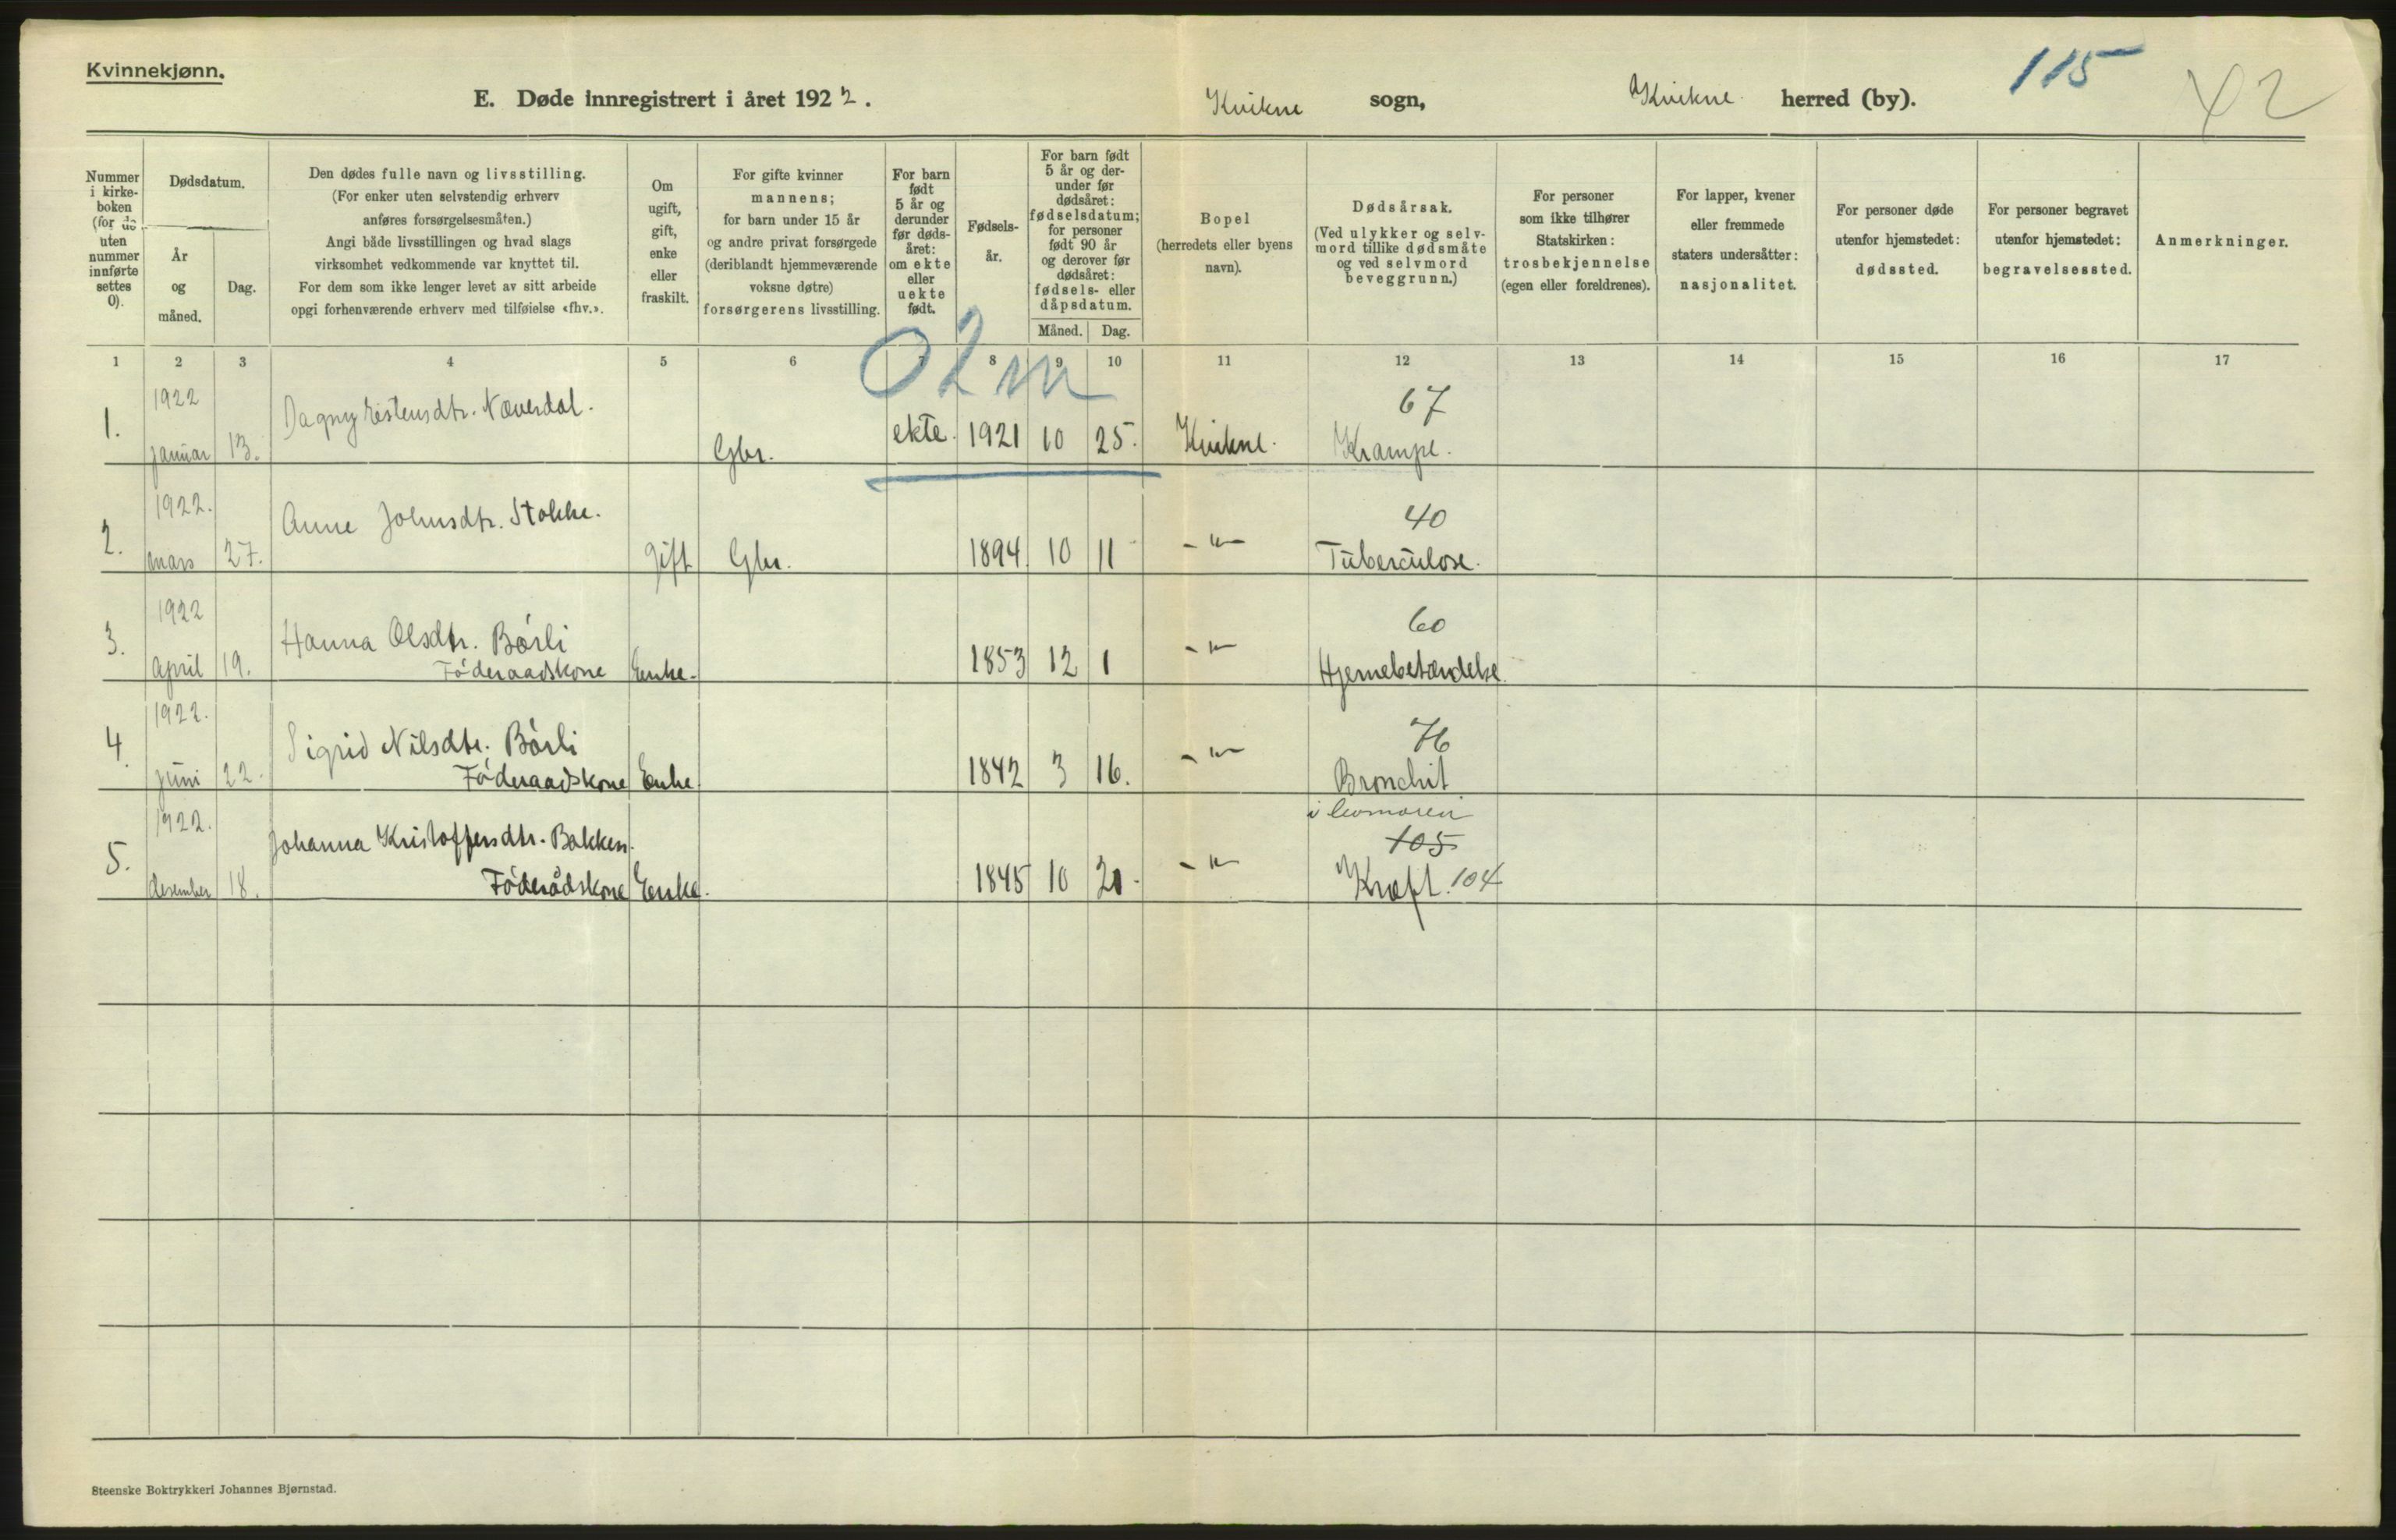 Kvinnekjønn.
E. Døde innregistrert i året 1922.
Kvikne sogn,
Kvikne herred (by).
115
42
Nummer i kirke-boken (for de uten nummer innførte settes 0).
Dødsdatum.
År og måned.
Dag.
Den dødes fulle navn og livsstilling.
(For enker uten selvstendig erhverv
anføres forsørgelsesmåten.)
Angi både livsstillingen og hvad slags
virksomhet vedkommende var knyttet til.
For dem som ikke lenger levet av sitt arbeide
opgi forhenværende erhverv med tilføielse «fhv.».
Om
ugift,
gift,
enke
eller
fraskilt.
For gifte kvinner
mannens;
for barn under 15 år
og andre privat forsørgede
(deriblandt hjemmeværende
voksne døtre)
forsørgerens livsstilling.
For barn
født
5 år og
derunder
før døds-
året:
om ekte
eller
uekte
født.
Fødsels-
år.
For barn født
5 år og der-
under før
dødsåret:
fødselsdatum;
for personer
født 90 år
og derover før
dødsåret:
fødsels- eller
dåpsdatum.
Måned. Dag.
Bopel
(herredets eller byens
navn).
Dødsårsak.
(Ved ulykker og selv-
mord tillike dødsmåte
og ved selvmord
beveggrunn.)
For personer
som ikke tilhører
Statskirken:
trosbekjennelse
(egen eller foreldrenes).
For lapper, kvener
eller fremmede
staters undersåtter:
nasjonalitet.
For personer døde
utenfor hjemstedet:
dødssted.
For personer begravet
utenfor hjemstedet:
begravelsessted.
Anmerkninger.
1 2 3 4 5 6 7 8 9 10 11 12 13 14 15 16 17
02m
1. 1922 januar 13. Dagny Eistensdtr. Næverdal. Gbr. ekte. 1921 10 25. Kvikne. 67 Krampe.
2. 1922. mars 27. Anne Johnsdtr. Stokke. gift Gbr. 1894 10 11 -"- 40 Tuberculose.
3. 1922 april 19. Hanna Olsdtr. Børli
Föderaadskone Enke. 1853 12 1 -"- 60 Hjernebetændelse.
4. 1922. juni 22. Sigrid Nilsdtr. Børli
Föderaadskone Enke 1842 3 16. -"- 76 Bronchit
5. 1922. desember 18. Johanna Kristoffersdtr. Bakken.
Föderådskone Enke. 1845 10 20. -"- 105 Kræft. 104
Steenske Boktrykkeri Johannes Bjørnstad.